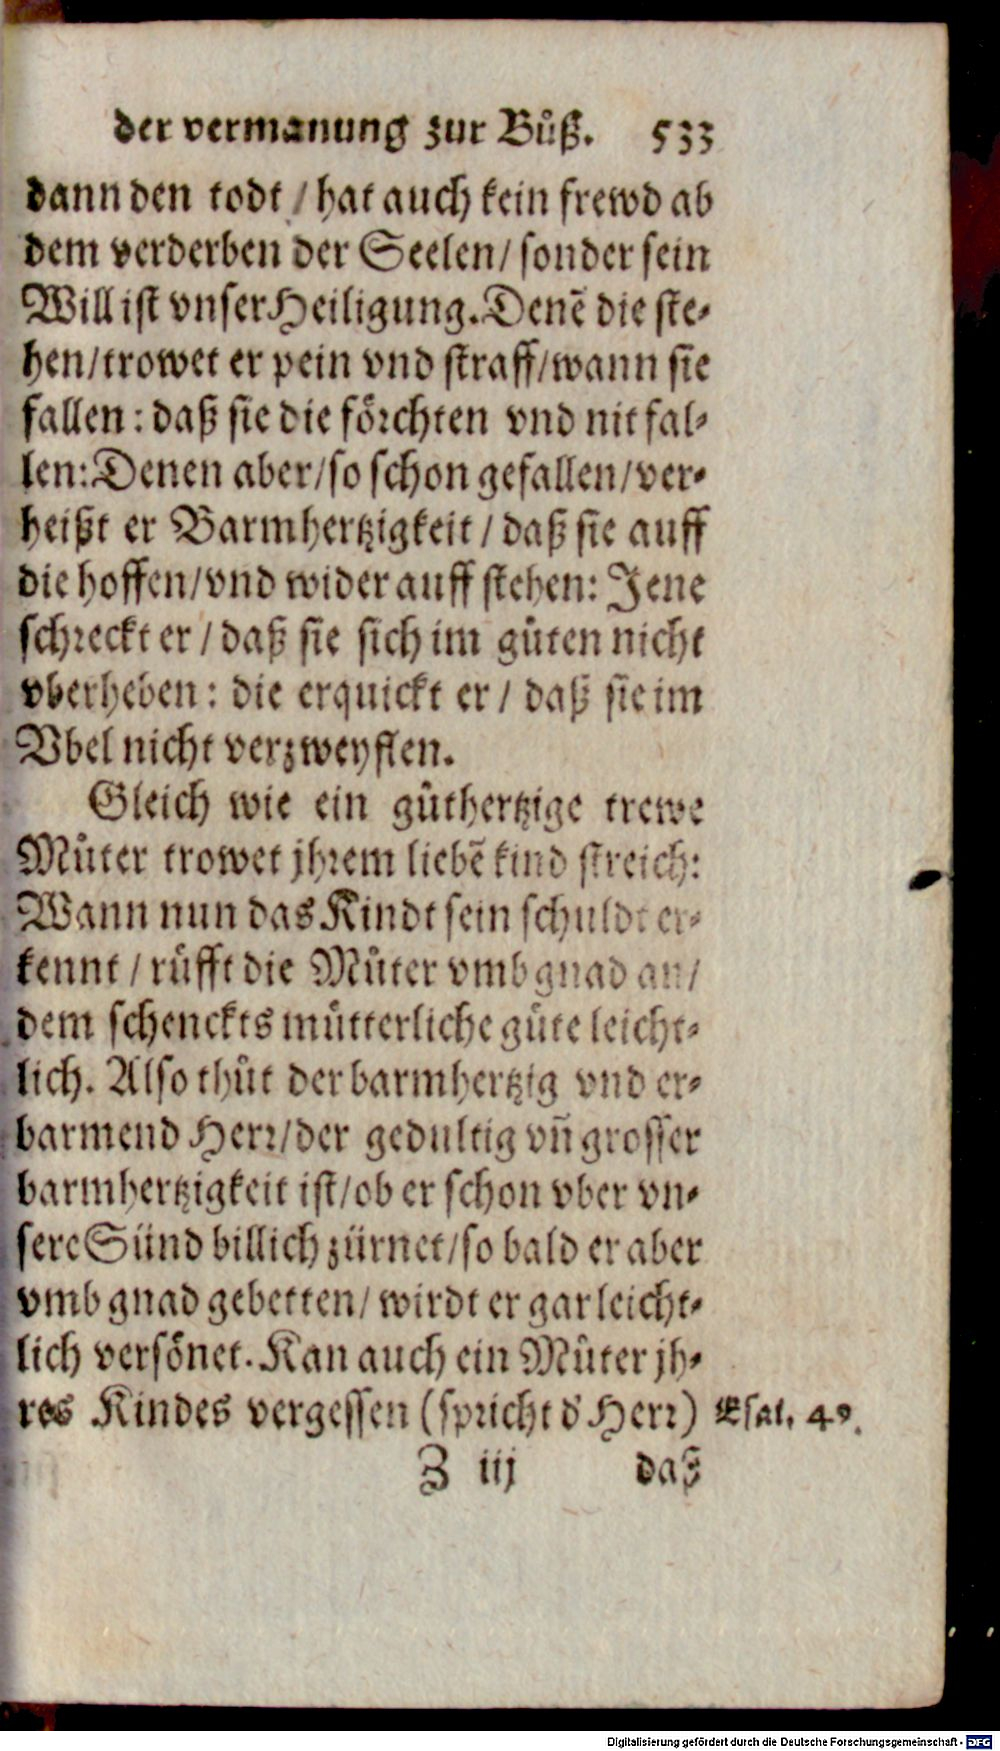 der vermanung zur Bůß. 533
dann den todt / hat auch kein frewd ab
dem verderben der Seelen/ sonder sein
Will ist vnser Heiligung. Denẽ die ste-
hen/trowet er pein vnd straff/wann sie
fallen: daß sie die förchten vnd nit fal-
len: Denen aber/so schon gefallen/ver-
heißt er Barmhertzigkeit / daß sie auff
die hoffen/vnd wider auff stehen: Jene
schreckt er / daß sie sich im gůten nicht
vberheben: die erquickt er / daß sie im
Vbel nicht verzweyflen.
Gleich wie ein gůthertzige trewe
Můter trowet jhrem liebẽ kind streich:
Wann nun das Kindt sein schuldt er-
kennt / růfft die Můter vmb gnad an/
dem schenckts můtterliche gůte leicht-
lich. Also thůt der barmhertzig vnd er-
barmend Herr/der gedultig vñ grosser
barmhertzigkeit ist/ob er schon vber vn-
sere Sünd billich zürnet/so bald er aber
vmb gnad gebetten/ wirdt er gar leicht-
lich versönet. Kan auch ein Můter jh-
res Kindes vergessen (spricht d' Herr) Esai. 49.
Z iij daß
Digitalisierung gefördert durch die Deutsche Forschungsgemeinschaft - DFG